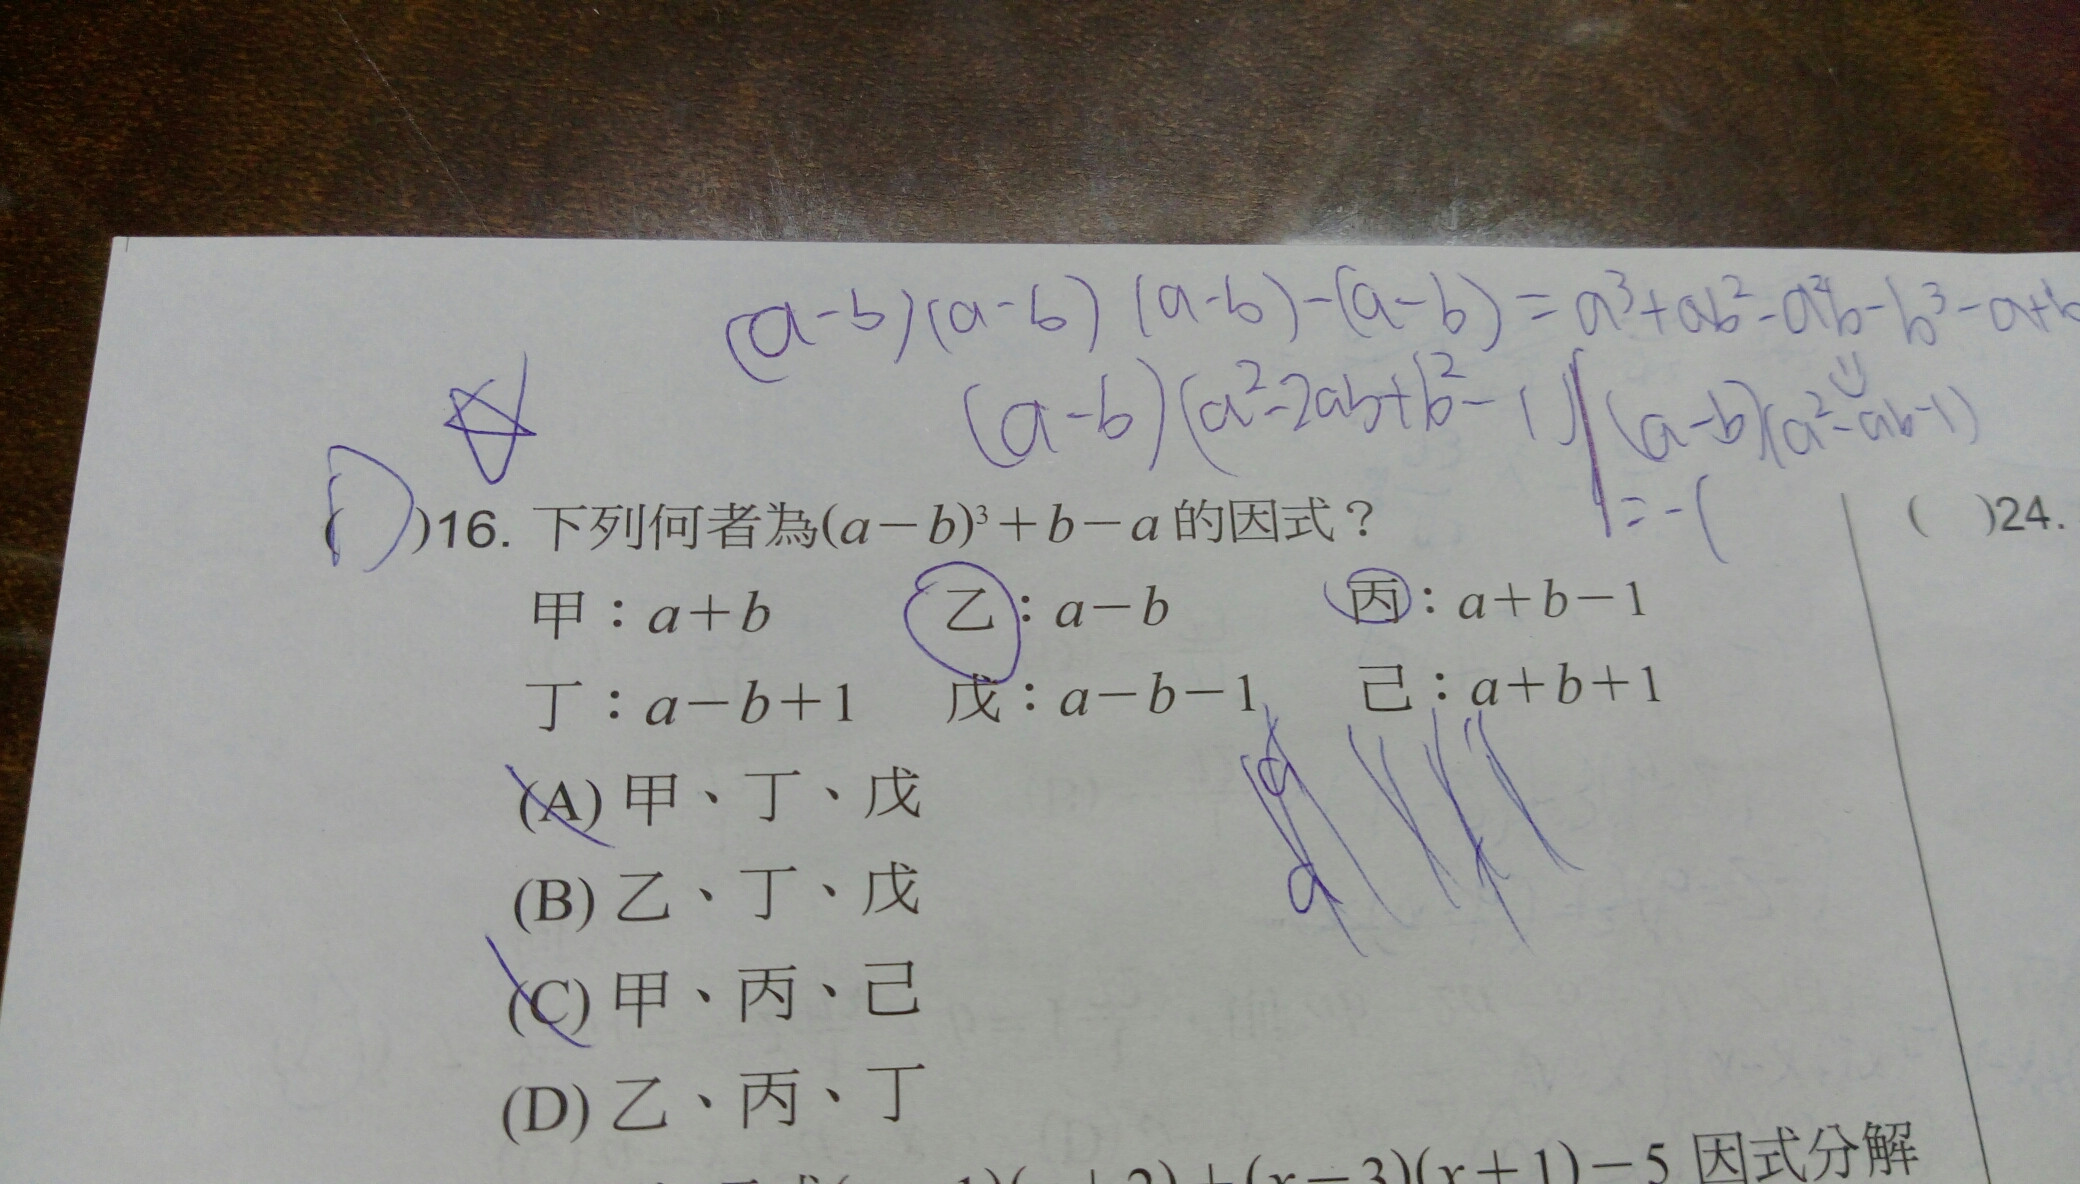 (a-b)(a-b)(a-b)-(a-b)=a³+ab²-a²b-b³-a+b
(a-b)(a²-2ab+b²-1) (a-b)(a²-ab-1)
=-(
(D)16. 下列何者為(a－b)³＋b－a 的因式？
甲：a＋b 乙：a－b 丙：a＋b－1
丁：a－b＋1 戊：a－b－1 己：a＋b＋1
(A) 甲、丁、戊
(B) 乙、丁、戊
(C) 甲、丙、己
(D) 乙、丙、丁
( )24.
＋(x－3)(x＋1)－5 因式分解